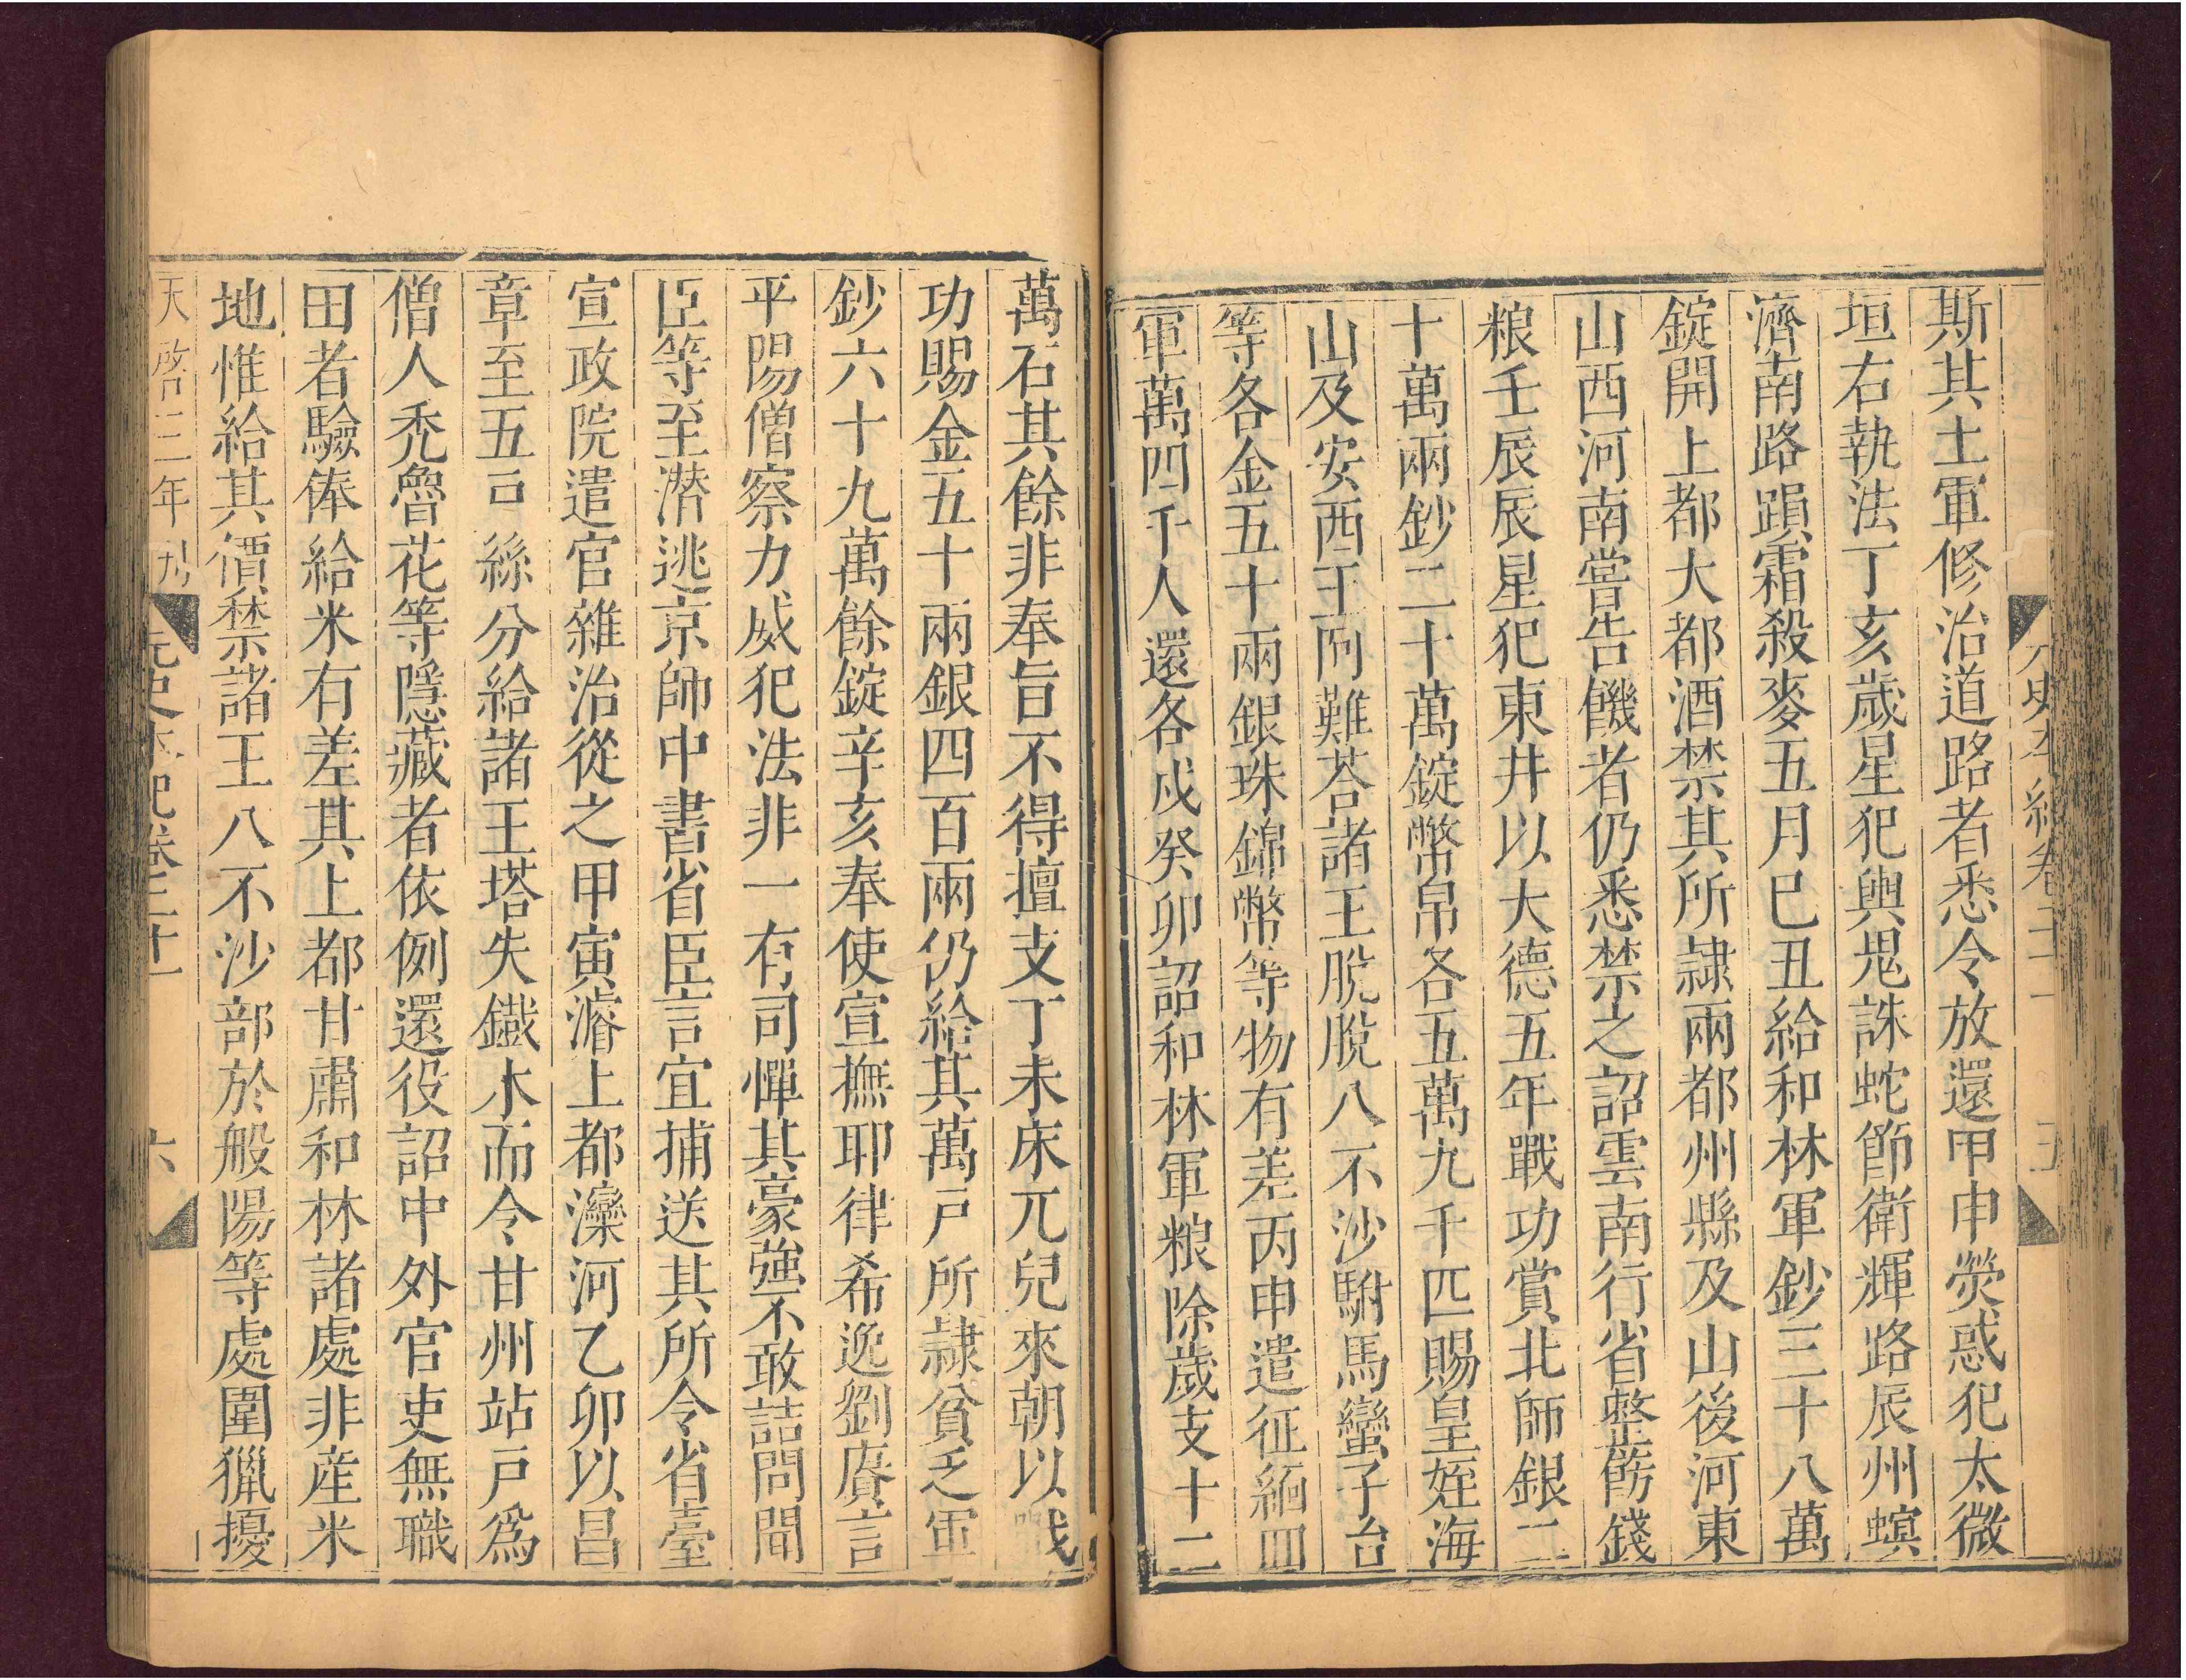 斯其土軍修治道路者悉令放還甲申熒惑犯太微
垣右執法丁亥歲星犯輿鬼誅蛇節衛輝路辰州螟
濟南路隕霜殺麥五月己丑給和林軍鈔三十八萬
錠開上都大都酒禁其所隸兩都州縣及山後河東
山西河南嘗告饑者仍悉禁之詔雲南行省整飭錢
粮壬辰辰星犯東井以大德五年戰功賞北師銀二
十萬兩鈔二十萬錠幣帛各五萬九千匹賜皇姪海
山及安西王阿難荅諸王脫脫八不沙駙馬蠻子台
等各金五十兩銀珠錦幣等物有差丙申遣征緬四
軍萬四千人還各戍癸卯詔和林軍粮除歲支十二
萬石其餘非奉旨不得擅支丁未床兀兒來朝以戰
功賜金五十兩銀四百兩仍給其萬戶所隸貧乏軍
鈔六十九萬餘錠辛亥奉使宣撫耶律希逸劉賡言
平陽僧察力威犯法非一有司憚其豪強不敢詰問聞
臣等至潜逃京師中書省臣言宜捕送其所令省臺
宣政院遣官雜治從之甲寅濬上都灤河乙卯以昌
章至五 絲分給諸王塔失鐵木而令甘州站戶為
僧人禿魯花等隱藏者依例還役詔中外官吏無職
田者驗俸給米有差其上都甘肅和林諸處非産米
地惟給其價禁諸王八不沙部於般陽等處圍獵擾
天啓三年刊 元史本紀卷二十一 六